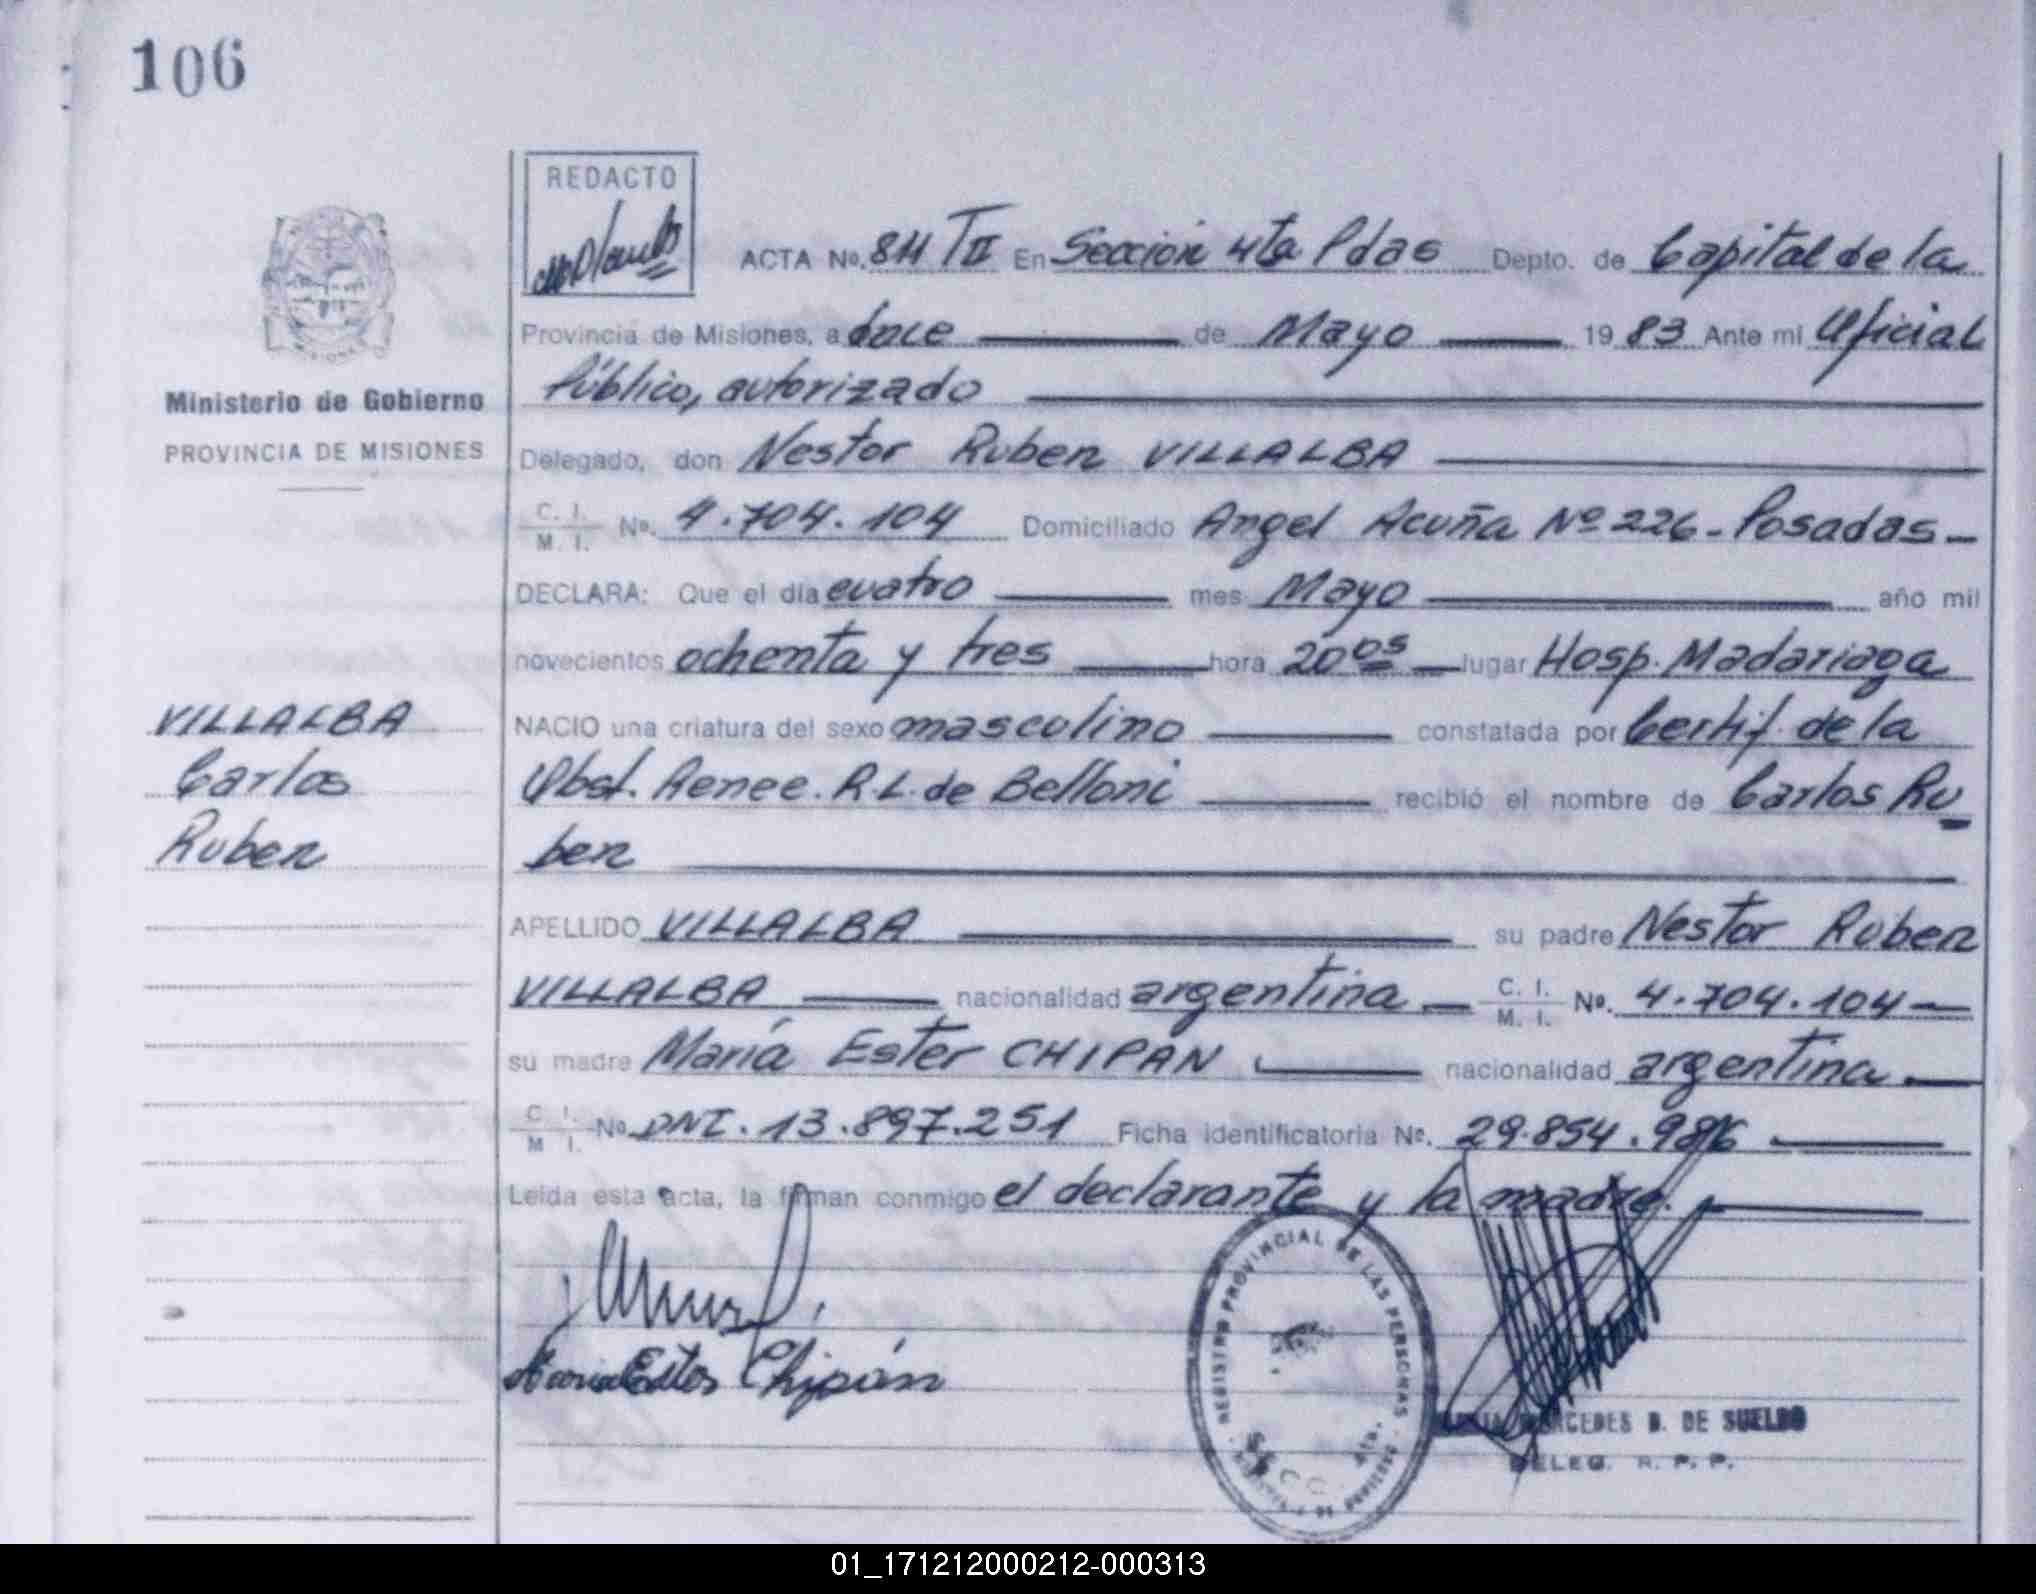 106
REDACTO
ACTA No. 811 TII En Sección 4ta Pdas Depto. de Capital de la
Provincia de Misiones, a doce de Mayo 1983 Ante mi Oficial
Público, autorizado
Ministerio de Gobierno
PROVINCIA DE MISIONES
Delegado, don Nestor Ruben VILLALBA
C. I.
M. I. No. 4.704.104 Domiciliado Angel Acuña Nº 226 - Posadas -
DECLARA: Que el día cuatro mes Mayo año mil
novecientos ochenta y tres hora 20 05 lugar Hosp. Madariaga
VILLALBA
Carlos
Ruben
NACIO una criatura del sexo masculino constatada por Certif. de la
Obst. Renee. R.L. de Belloni recibió el nombre de Carlos Ru
ben
APELLIDO VILLALBA su padre Nestor Ruben
VILLALBA nacionalidad argentina C. I.
M. I. No. 4.704.104
su madre María Ester CHIPAN nacionalidad argentina.
C. I.
M I. No. DNI. 13.897.251 Ficha identificatoria No. 29.854.986
Leida esta acta, la firman conmigo el declarante y la madre.
Maria Ester Chipán
REGISTRO PROVINCIAL DE LAS PERSONAS
SECC. 4ta.
MERCEDES B. DE SUELDO
DELEG. R. P. P.
01_171212000212-000313